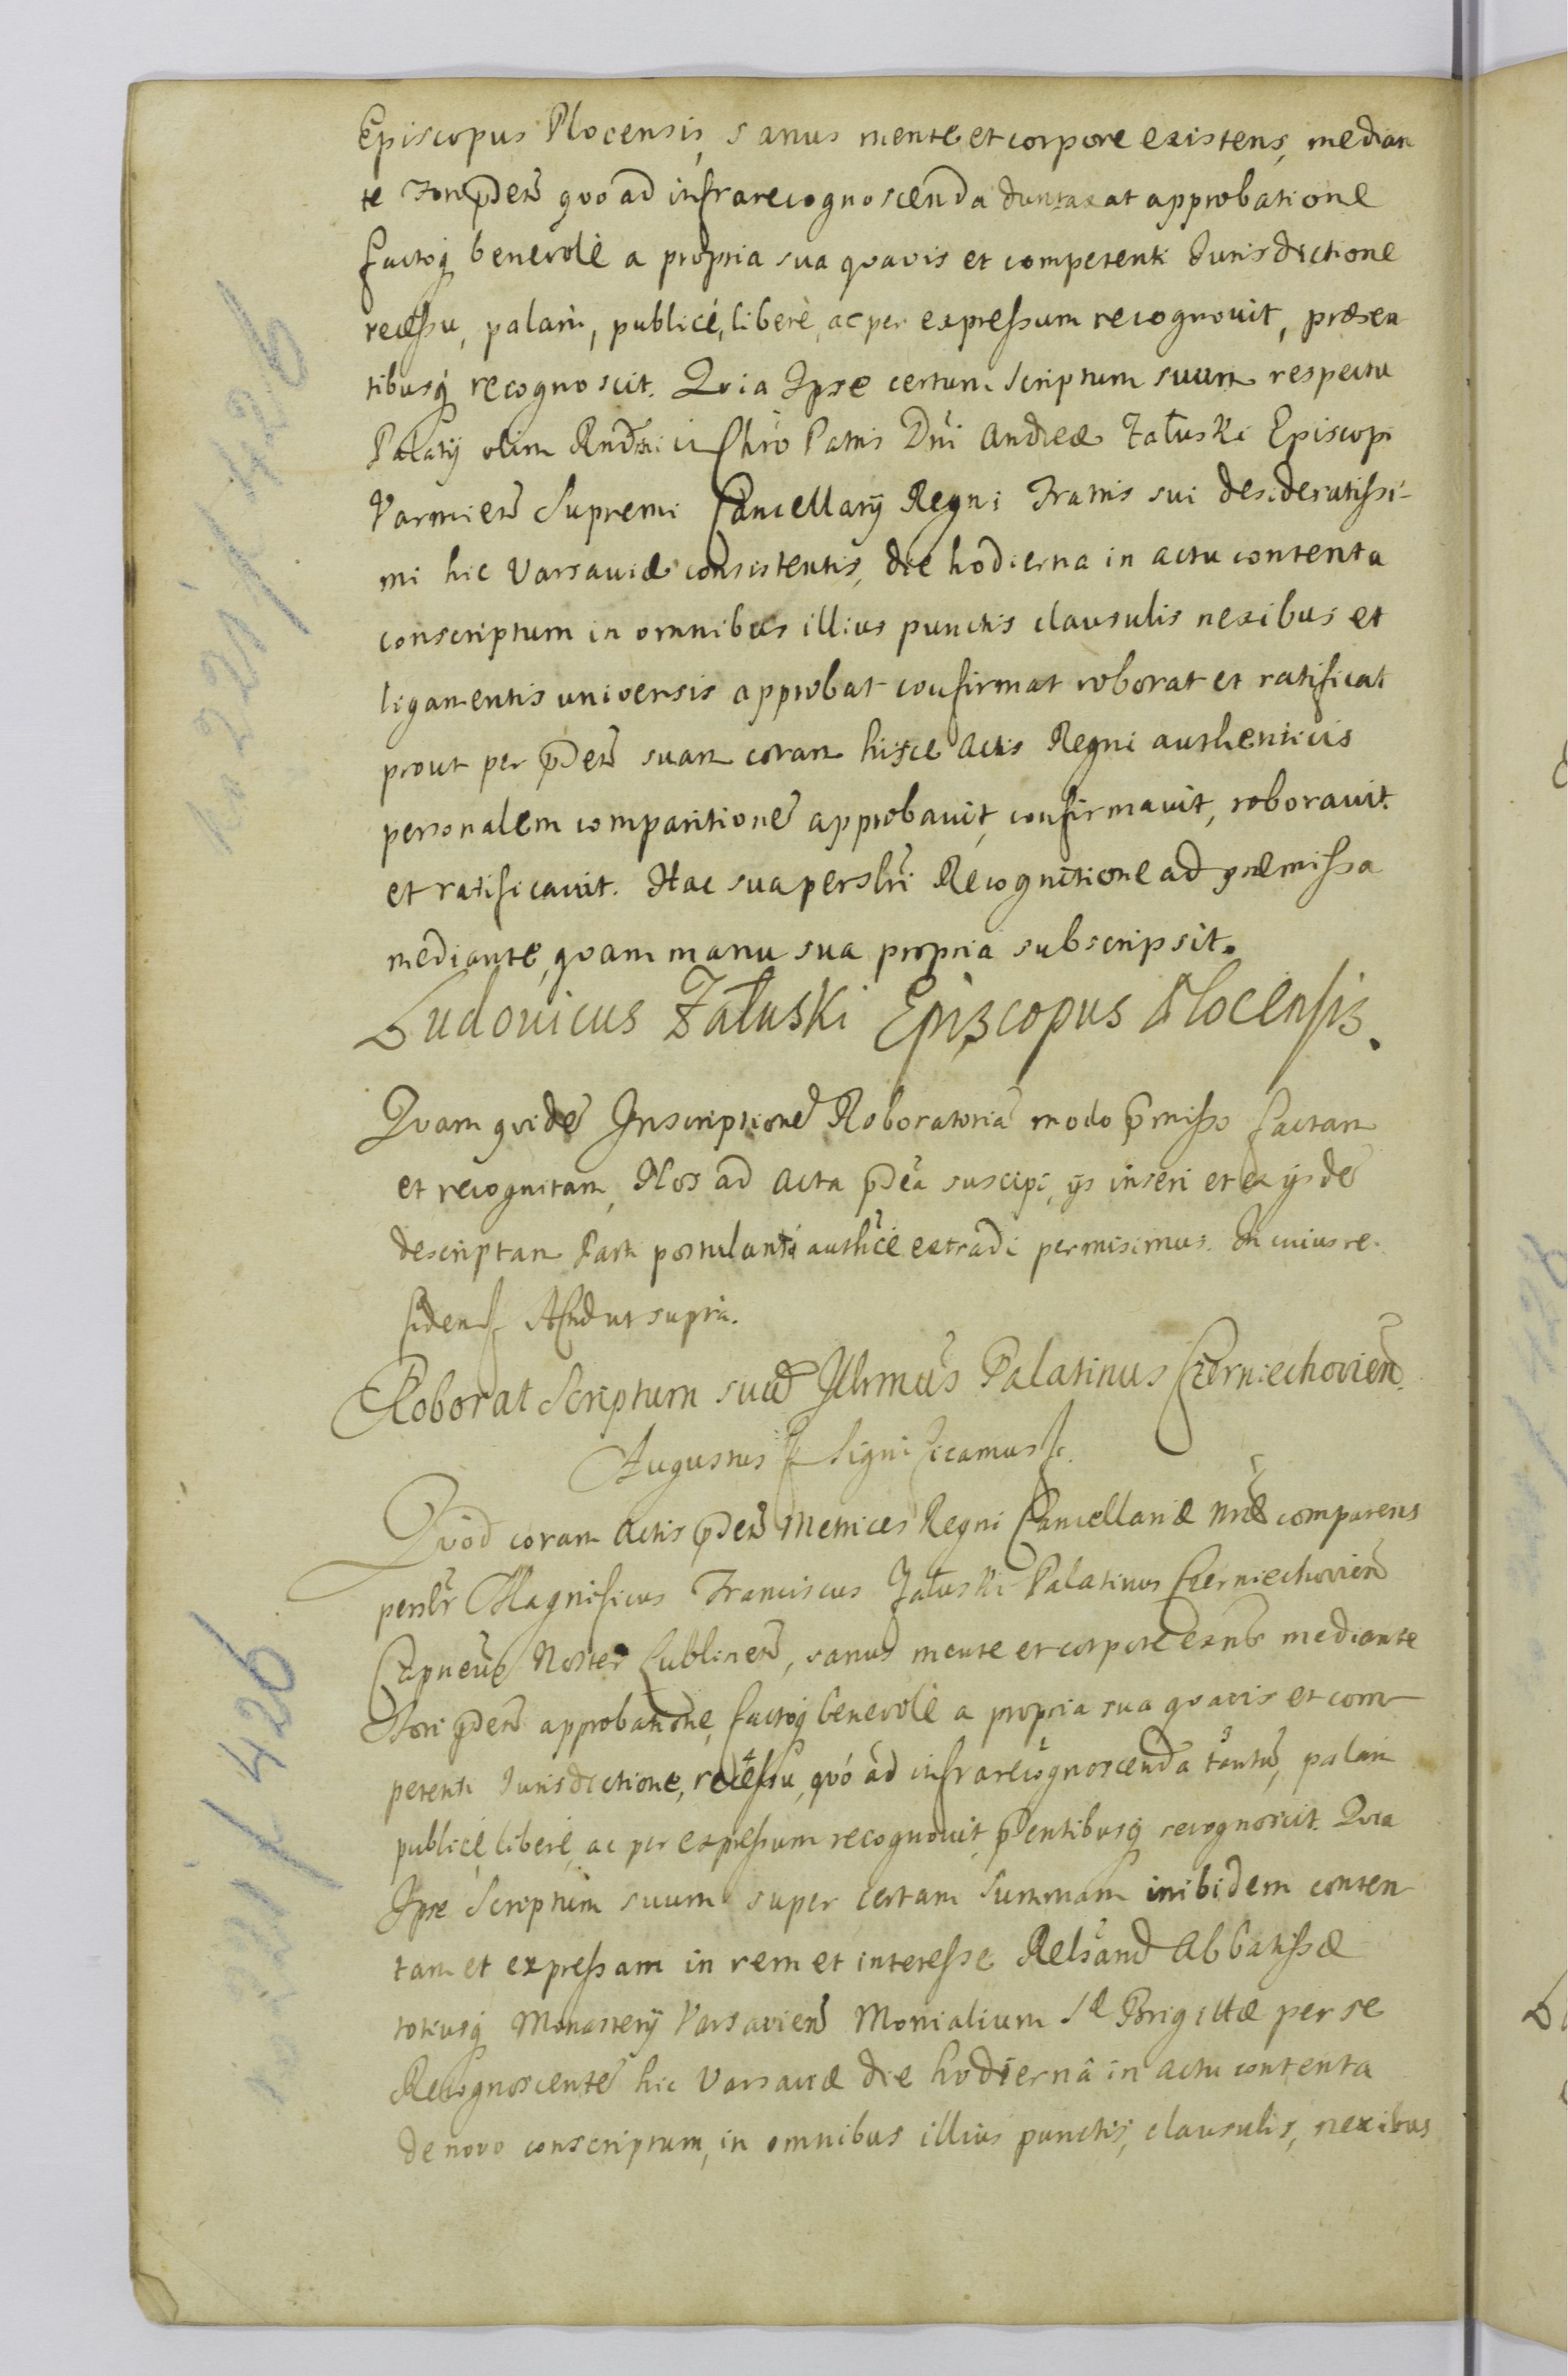 Episcopus Plocensis, sanus mente et corpore existens, median
te Fori p̄den̄ quo ad infrarecognoscenda duntaxat approbatione
factoq̨ benevolè a propria sua quavis et competenti Jurisdictione
recessu, palam, publicè, liberè, ac per expressum recognovit, præsen
tibusq̨ recognoscit. Quia Ipse certum Scriptum suum respectu
Palatij olim Rndm̄i in Chr̄o Patris Dn̄i Andreæ Załuski Episcopi
Varmien̄ Supremi Cancellarij Regni Fratris sui desideratissi-
mi hic Varsaviæ consistentis, die hodierna in actu contenta
conscriptum in omnibus illius punctis clausulis nexibus et
ligamentis universis approbat confirmat roborat et ratificat
prout per p̄den̄ suam coram hisce Actis Regni authenticis
personalem comparitionē approbavit, confirmavit, roboravit
et ratificavit. Hac sua perslr̄i Recognitione ad præmissa
mediante, quam manu sua propria subscripsit.
Ludovicus Załuski Episcopus Plocensis.
Quam quidē Inscriptionē Roboratoriā modo p̄misso factam
et recognitam, Nos ad Acta p̄dcā suscipi, ijs inseri et ex ijsdē
descriptam Parti postulanti authc̄e extradi permisimus. In cuius re-
fidem ut supra.
Roborat Scriptum suū Illrmūs Palatinus Czerniechovien̄
Augustus Significamus
Quod coram Actis p̄den̄ Metrices Regni Cancellariæ Nr̄æ comparens
perslr̄ Magnificus Franciscus Załuski Palatinus Czerniechovien̄
Capneūs Noster Lublinen̄, sanus mente et corpore exn̄s mediante
Fori p̄den̄ approbatione, factoq̨ benevolè a propria sua quavis et com
petenti Jurisdictione, recessu, quo ad infrarecognoscenda tantū, palam
publicè, liberè, ac per expressum recognovit, p̄ntibusq̨ recognoscit. Quia
Ipse Scriptum suum super certam Summam inibidem conten
tam et expressam in rem et interesse Abbatissæ
totiusq̨ Monasterij Varsavien̄ Monialium Sæ Brigittæ per se
Recognoscentē hic Varsaviæ die hodiernâ in actu contenta
de novo conscriptum, in omnibus illius punctis, clausulis, nexibus
221/426
221/426